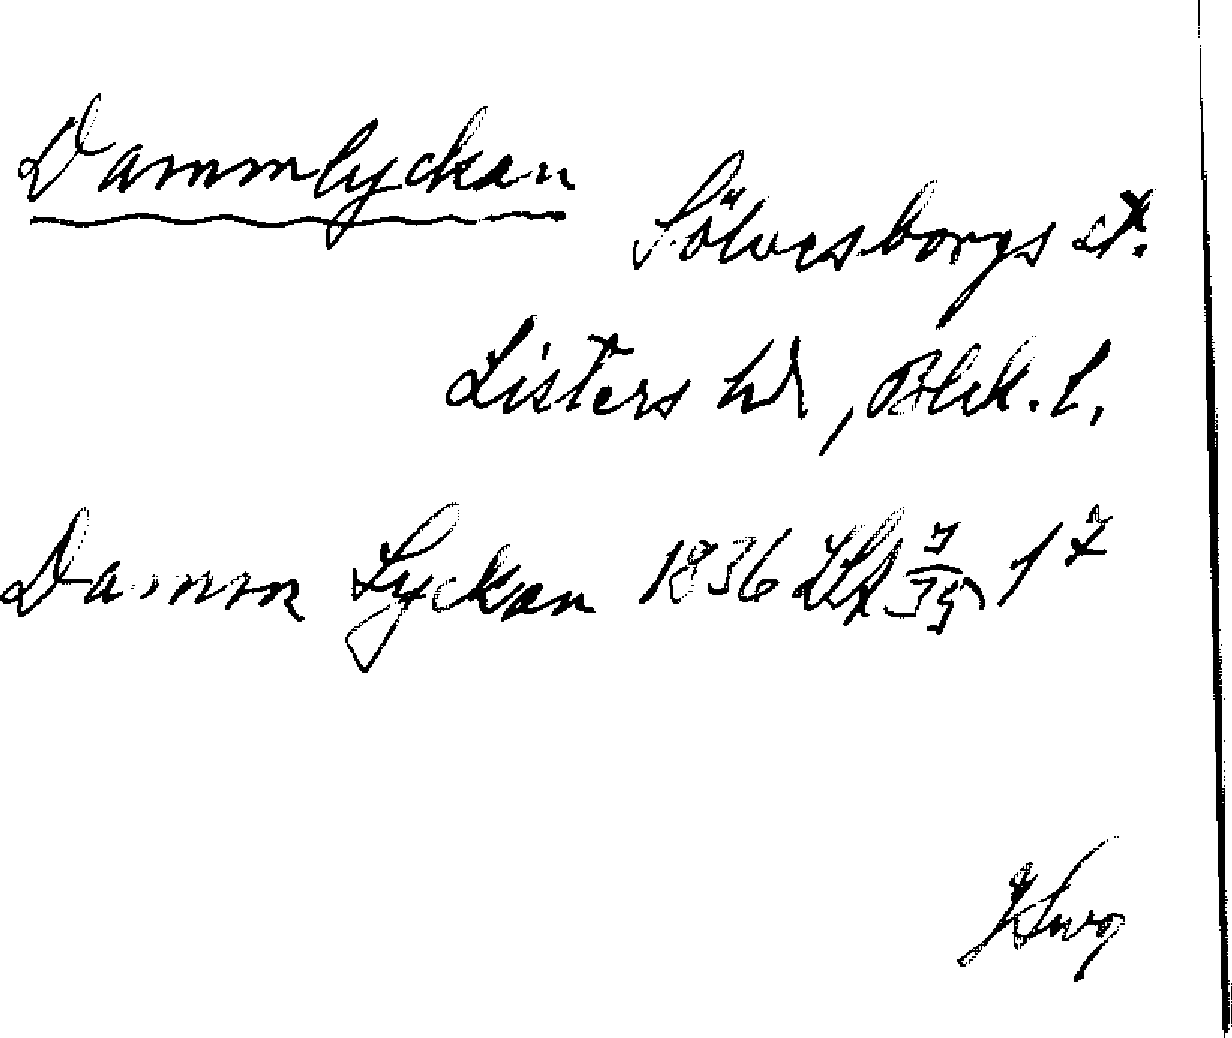 Dammlyckan
Sölvesborgs st.
Listers hd, Blek. l.
Damm Lyckan 1836 LSA 7